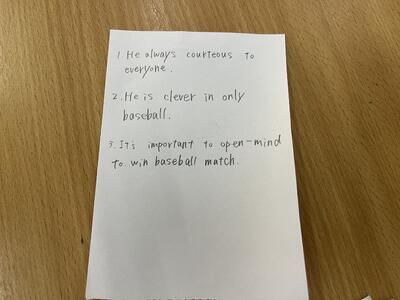 1. He always courteous to
everyone.
2. He is clever in only
baseball.
3. It's important to open-mind
to win baseball match.